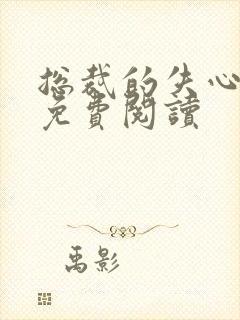 总裁的失心
免費閱讀
禹影